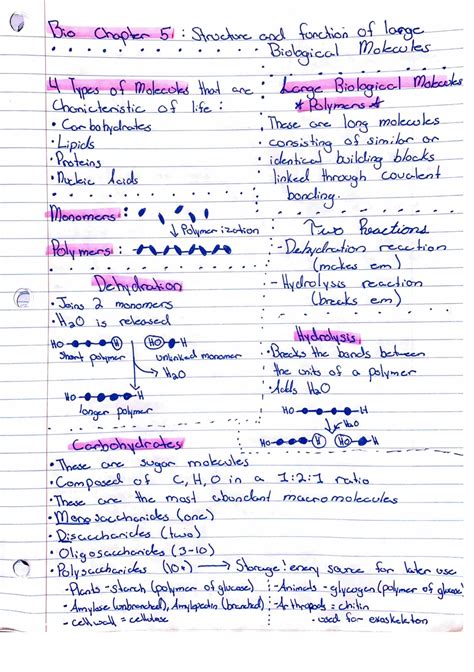 Bio Chapter 5 : Structure and function of large
Biological Molecules
4 Types of Molecules that are
Characteristic of life :
• Carbohydrates
• Lipids
• Proteins
• Nucleic Acids
Large Biological Molecules
* Polymers *
These are long molecules
consisting of similar or
identical building blocks
linked through covalent
bonding.
Monomers :
↓ Polymerization
Polymers :
Two Reactions
- Dehydration reaction
(makes em)
- Hydrolysis reaction
(breaks em)
Dehydration
• Joins 2 monomers
• H2O is released
HO H HO H
Short polymer unlinked monomer
→ H2O
HO H
longer polymer
Hydrolysis
• Breaks the bonds between
the units of a polymer
• Adds H2O
HO H
H2O
HO H HO H
Carbohydrates
• These are sugar molecules
• Composed of C, H, O in a 1:2:1 ratio
• These are the most abundant macromolecules
• Monosaccharides (one)
• Disaccharides (two)
• Oligosaccharides (3-10)
• Polysaccharides (10+) → Storage/energy source for later use
- Plants - starch (polymer of glucose)
- Amylose (unbranched), Amylopectin (branched)
- cell wall = cellulose
- Animals - glycogen (polymer of glucose)
- Arthropods = chitin
- used for exoskeleton